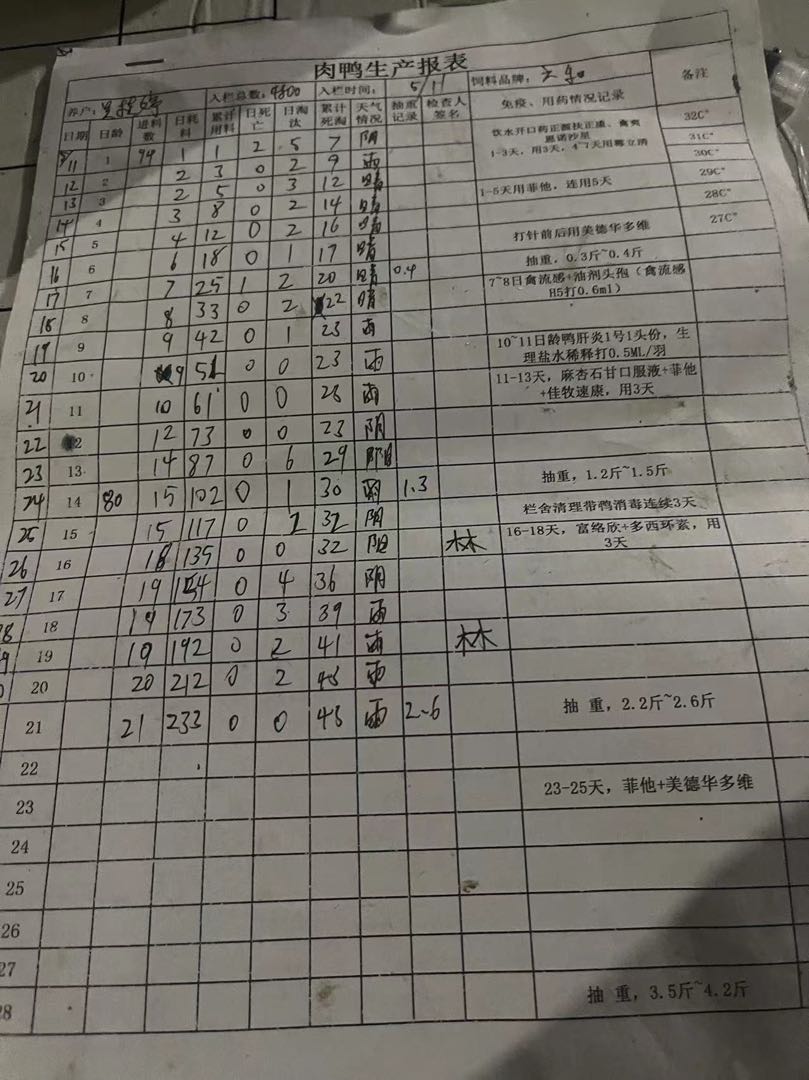 肉鸭生产报表
养户: 入栏总数: 4800 入栏时间: 5/11 饲料品牌: 备注
日期 日龄 进料数 日耗料 累计用料 日死亡 日淘汰 累计死淘 天气情况 抽重记录 检查人签名 免疫、用药情况记录
11 1 94 1 1 2 5 7 阴 32C°
饮水开口药正源扶正
恩诺沙星
1-3天,用3天,4~7天用
12 2 2 3 0 2 9 雨 31C°
13 3 2 5 0 3 12 晴 30C°
14 4 3 8 0 2 14 晴 1-5天用菲他,连用5天 29C°
15 5 4 12 0 2 16 晴 28C°
16 6 6 18 0 1 17 晴 打针前后用美德华多维 27C°
17 7 7 25 1 2 20 晴 0.4 抽重,0.3斤~0.4斤
18 8 8 33 0 2 22 晴 7~8日禽流感+油剂头孢(禽流感
H5打0.6ml)
19 9 9 42 0 1 23 雨
20 10 9 51 0 0 23 雨 10~11日龄鸭肝炎1号1头份,生
理盐水稀释打0.5ML/羽
21 11 10 61 0 0 23 雨 11-13天,麻杏石甘口服液+菲他
+佳牧速康,用3天
22 12 12 73 0 0 23 阴
23 13 14 87 0 6 29 阴
24 14 80 15 102 0 1 30 阴 1.3 抽重,1.2斤~1.5斤
25 15 15 117 0 2 32 阴 栏舍清理带鸭消毒连续3天
26 16 18 135 0 0 32 阳 林 16-18天,富络欣+多西环素,用
3天
27 17 19 154 0 4 36 阴
28 18 19 173 0 3 39 雨
19 19 192 0 2 41 雨 林
20 20 212 0 2 43 雨
21 21 233 0 0 43 雨 2-6 抽 重,2.2斤~2.6斤
22
23 23-25天,菲他+美德华多维
24
25
26
27
28 抽 重,3.5斤~4.2斤